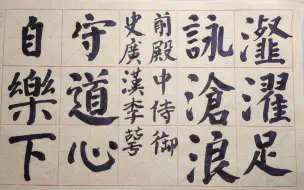 瀣濯足
詠滄浪
前殿中侍御
史廣漢李萼
守道心
自樂下